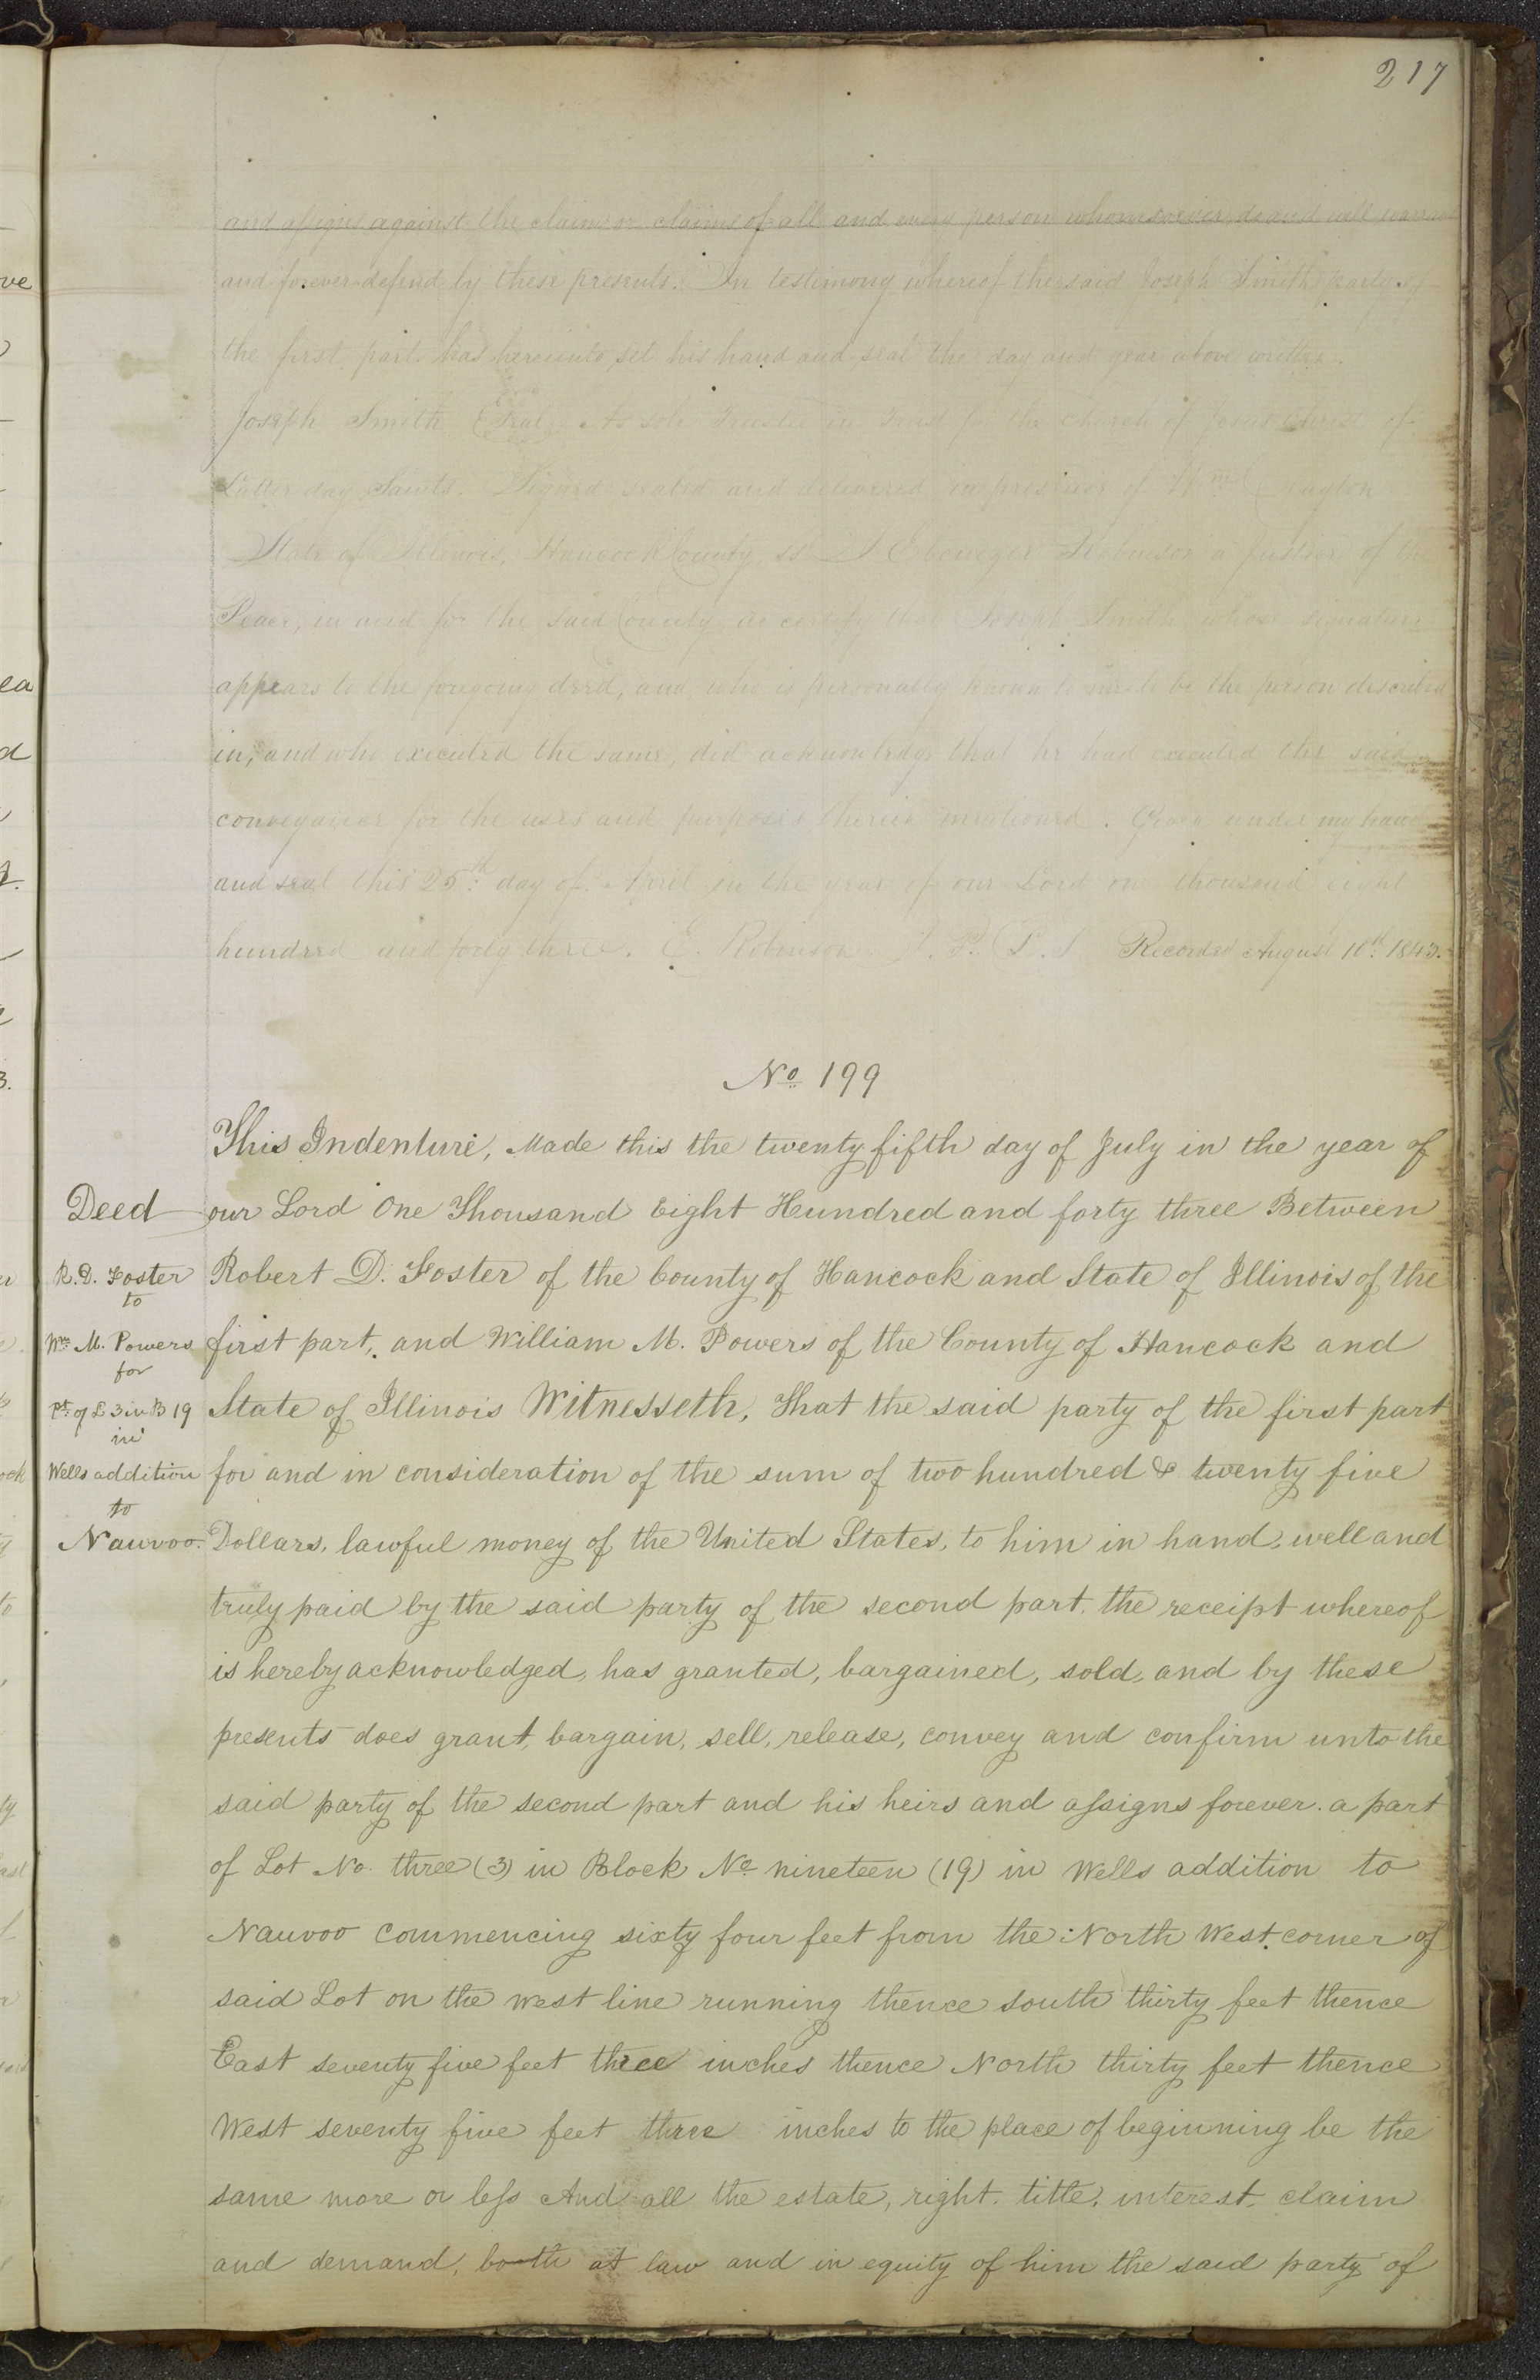 217
and assigns against the claim or claims of all and every person whomsoever do and will warrant
and forever defend by these presents. In testimony whereof the said Joseph Smith party of
the first part has hereunto set his hand and seal the day and year above written.
Joseph Smith Seal As sole Trustee in Trust for the Church of Jesus Christ of
Latter day Saints. Signed sealed and delivered in presence of Wm Clayton
State of Illinois, Hancock County ss I Ebenezer Robinson a Justice of the
Peace, in and for the said County do certify that Joseph Smith whose signature
appears to the foregoing deed, and who is personally known to me to be the person described
in, and who executed the same, did acknowledge that he had executed the said
conveyance for the uses and purposes therein mentioned. Given under my hand
and seal this 25th day of April in the year of our Lord one thousand eight
hundred and forty three. E. Robinson J. P. L. S Recorded August 10th 1843.
No 199
This Indenture, Made this the twenty fifth day of July in the year of
Deed our Lord One Thousand Eight Hundred and forty three Between
R. D. Foster Robert D. Foster of the County of Hancock and State of Illinois of the
to
Wm M. Powers first part, and William M. Powers of the County of Hancock and
for
Pt of L 3 in B 19 State of Illinois Witnesseth, That the said party of the first part
in
Wells addition for and in consideration of the sum of two hundred & twenty five
to
Nauvoo. Dollars, lawful money of the United States, to him in hand, well and
truly paid by the said party of the second part, the receipt whereof
is hereby acknowledged, has granted, bargained, sold, and by these
presents does grant, bargain, sell, release, convey and confirm unto the
said party of the second part and his heirs and assigns forever. a part
of Lot No. three (3) in Block No nineteen (19) in Wells addition to
Nauvoo Commencing sixty four feet from the North West corner of
said Lot on the west line running thence south thirty feet thence
East seventy five feet three inches thence North thirty feet thence
West seventy five feet three inches to the place of beginning be the
same more or less And all the estate, right, title, interest, claim
and demand, both at law and in equity of him the said party of